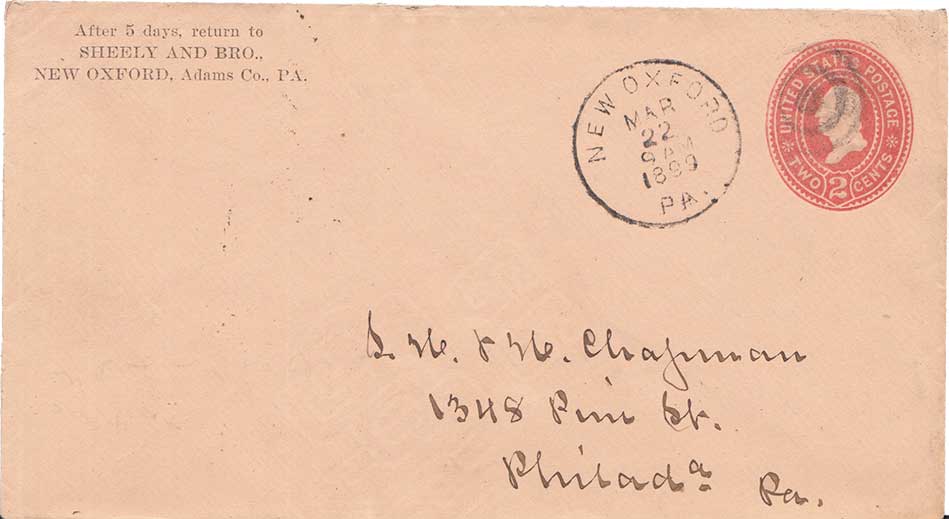 After 5 days, return to
SHEELY AND BRO.,
NEW OXFORD, Adams Co., PA.
NEW OXFORD
MAR
22
9 AM
1899
PA.
UNITED STATES POSTAGE
TWO 2 CENTS
S. H. & H. Chapman
1348 Pine St.
Philada. Pa.